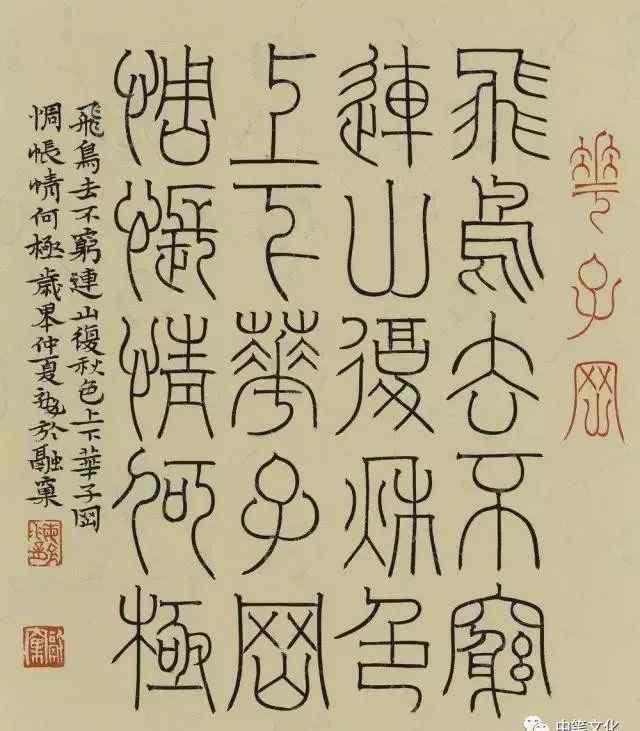 華子岡
飛鳥去不窮
連山復秋色
上下華子岡
惆悵情何極
飛鳥去不窮連山復秋色上下華子岡
惆悵情何極歲仲夏於融窠
中笔文化